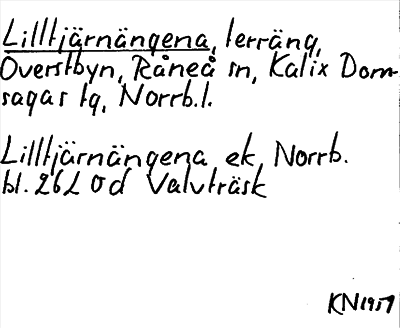 Lilltjärnängena, terräng,
Överstbyn, Råneå sn, Kalix Dom-
sagas tg, Norrb.l.
Lilltjärnängena ek, Norrb.
bl. 26 L 0 d Valvträsk
KN 1957